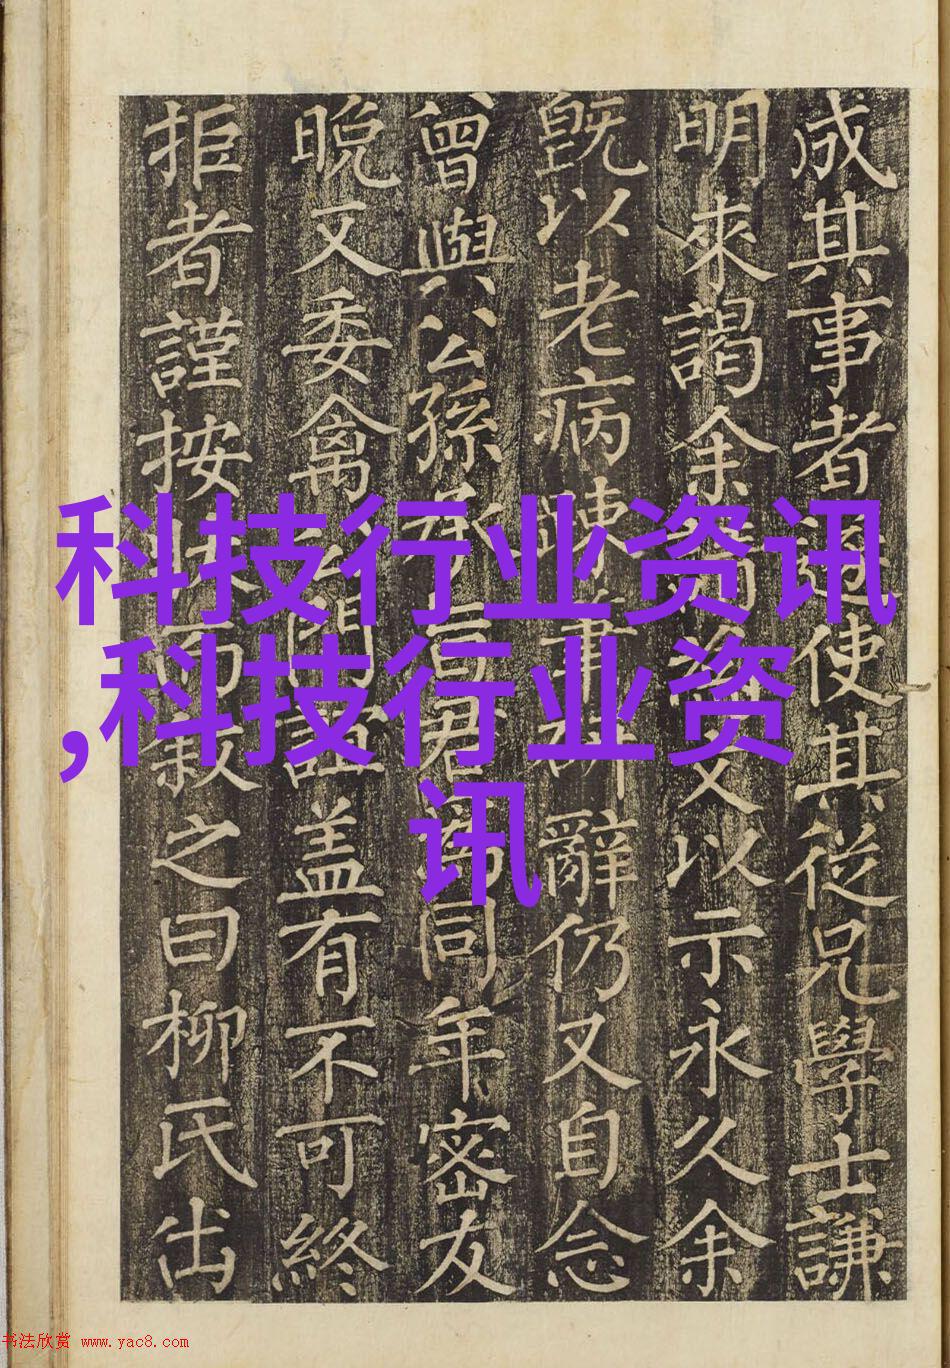 成其事者使其從兄學士謙
明來謁余請為文以示永久余
旣以老病踈筆硏辭仍又自念
曾與公孫承旨君為同年密友
晚又委禽公門誼盖有不可終
拒者謹按狀而叙之曰柳氏出
科技行业资讯
,科技行业资
讯
书法欣赏 www.yac8.com